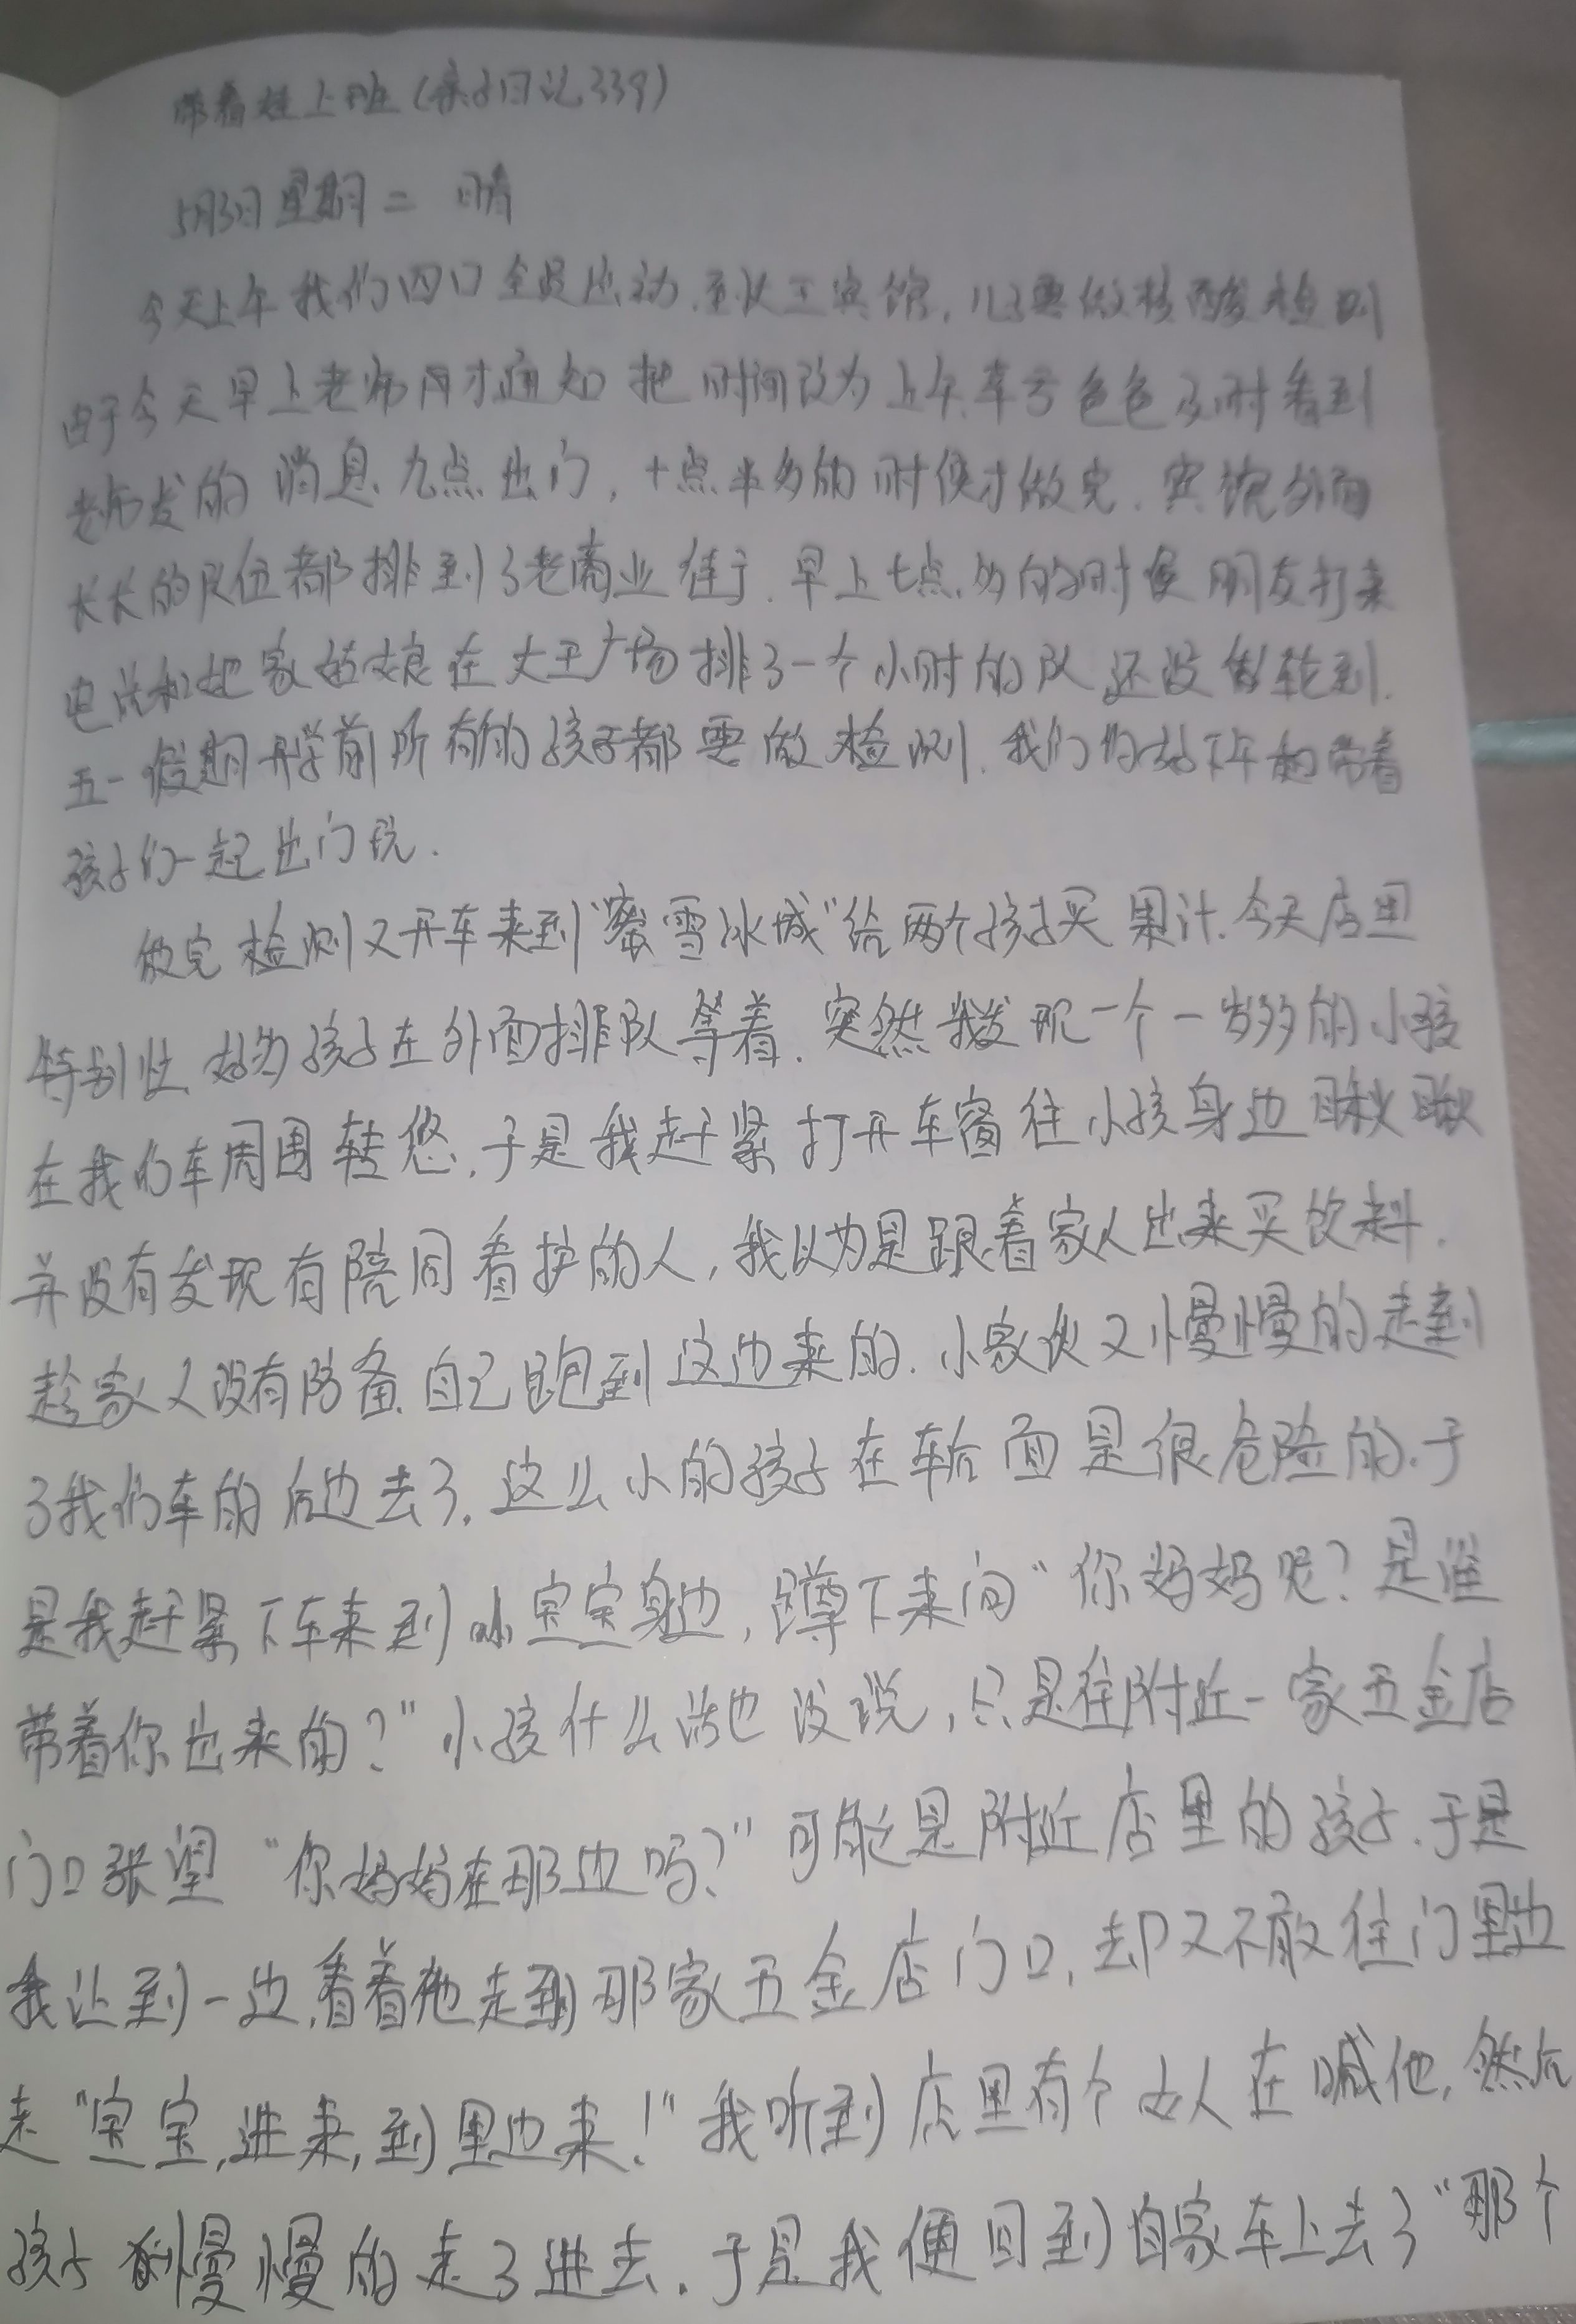 带着娃上班（亲子日记339）
5月3日 星期二 晴
今天上午我们四口全员出动.至大王宾馆,儿子要做核酸检测
由于今天早上老师才通知把时间改为上午.幸亏爸爸及时看到
老师发的消息.九点出门,十点半多的时候才做完.宾馆外面
长长的队伍都排到了老商业街了.早上七点多的时候朋友打来
电话和她家姑娘在大王广场排了一个小时的队还没有轮到.
五一假期开学前所有的孩子都要做检测.我们约好下午带着
孩子们一起出门玩.
做完检测又开车来到“蜜雪冰城”给两个孩子买果汁.今天店里
特别忙.好多孩子在外面排队等着.突然我发现一个一岁多的小孩
在我们车周围转悠,于是我赶紧打开车窗往小孩身边瞅瞅
并没有发现有陪同看护的人,我以为是跟着家人出来买饮料.
趁家人没有防备.自己跑到这边来的.小家伙又慢慢的走到
了我们车的后边去了.这么小的孩子在车后面是很危险的.于
是我赶紧下车来到小宝宝身边,蹲下来问“你妈妈呢?是谁
带着你出来的?”小孩什么话也没说,只是往附近一家五金店
门口张望“你妈妈在那边吗?”可能是附近店里的孩子.于是
我让到一边,看着他走到那家五金店门口,却又不敢往门里边
走“宝宝,进来,到里边来!”我听到店里有个女人在喊他,然后
孩子慢慢的走了进去.于是我便回到自家车上去了“那个